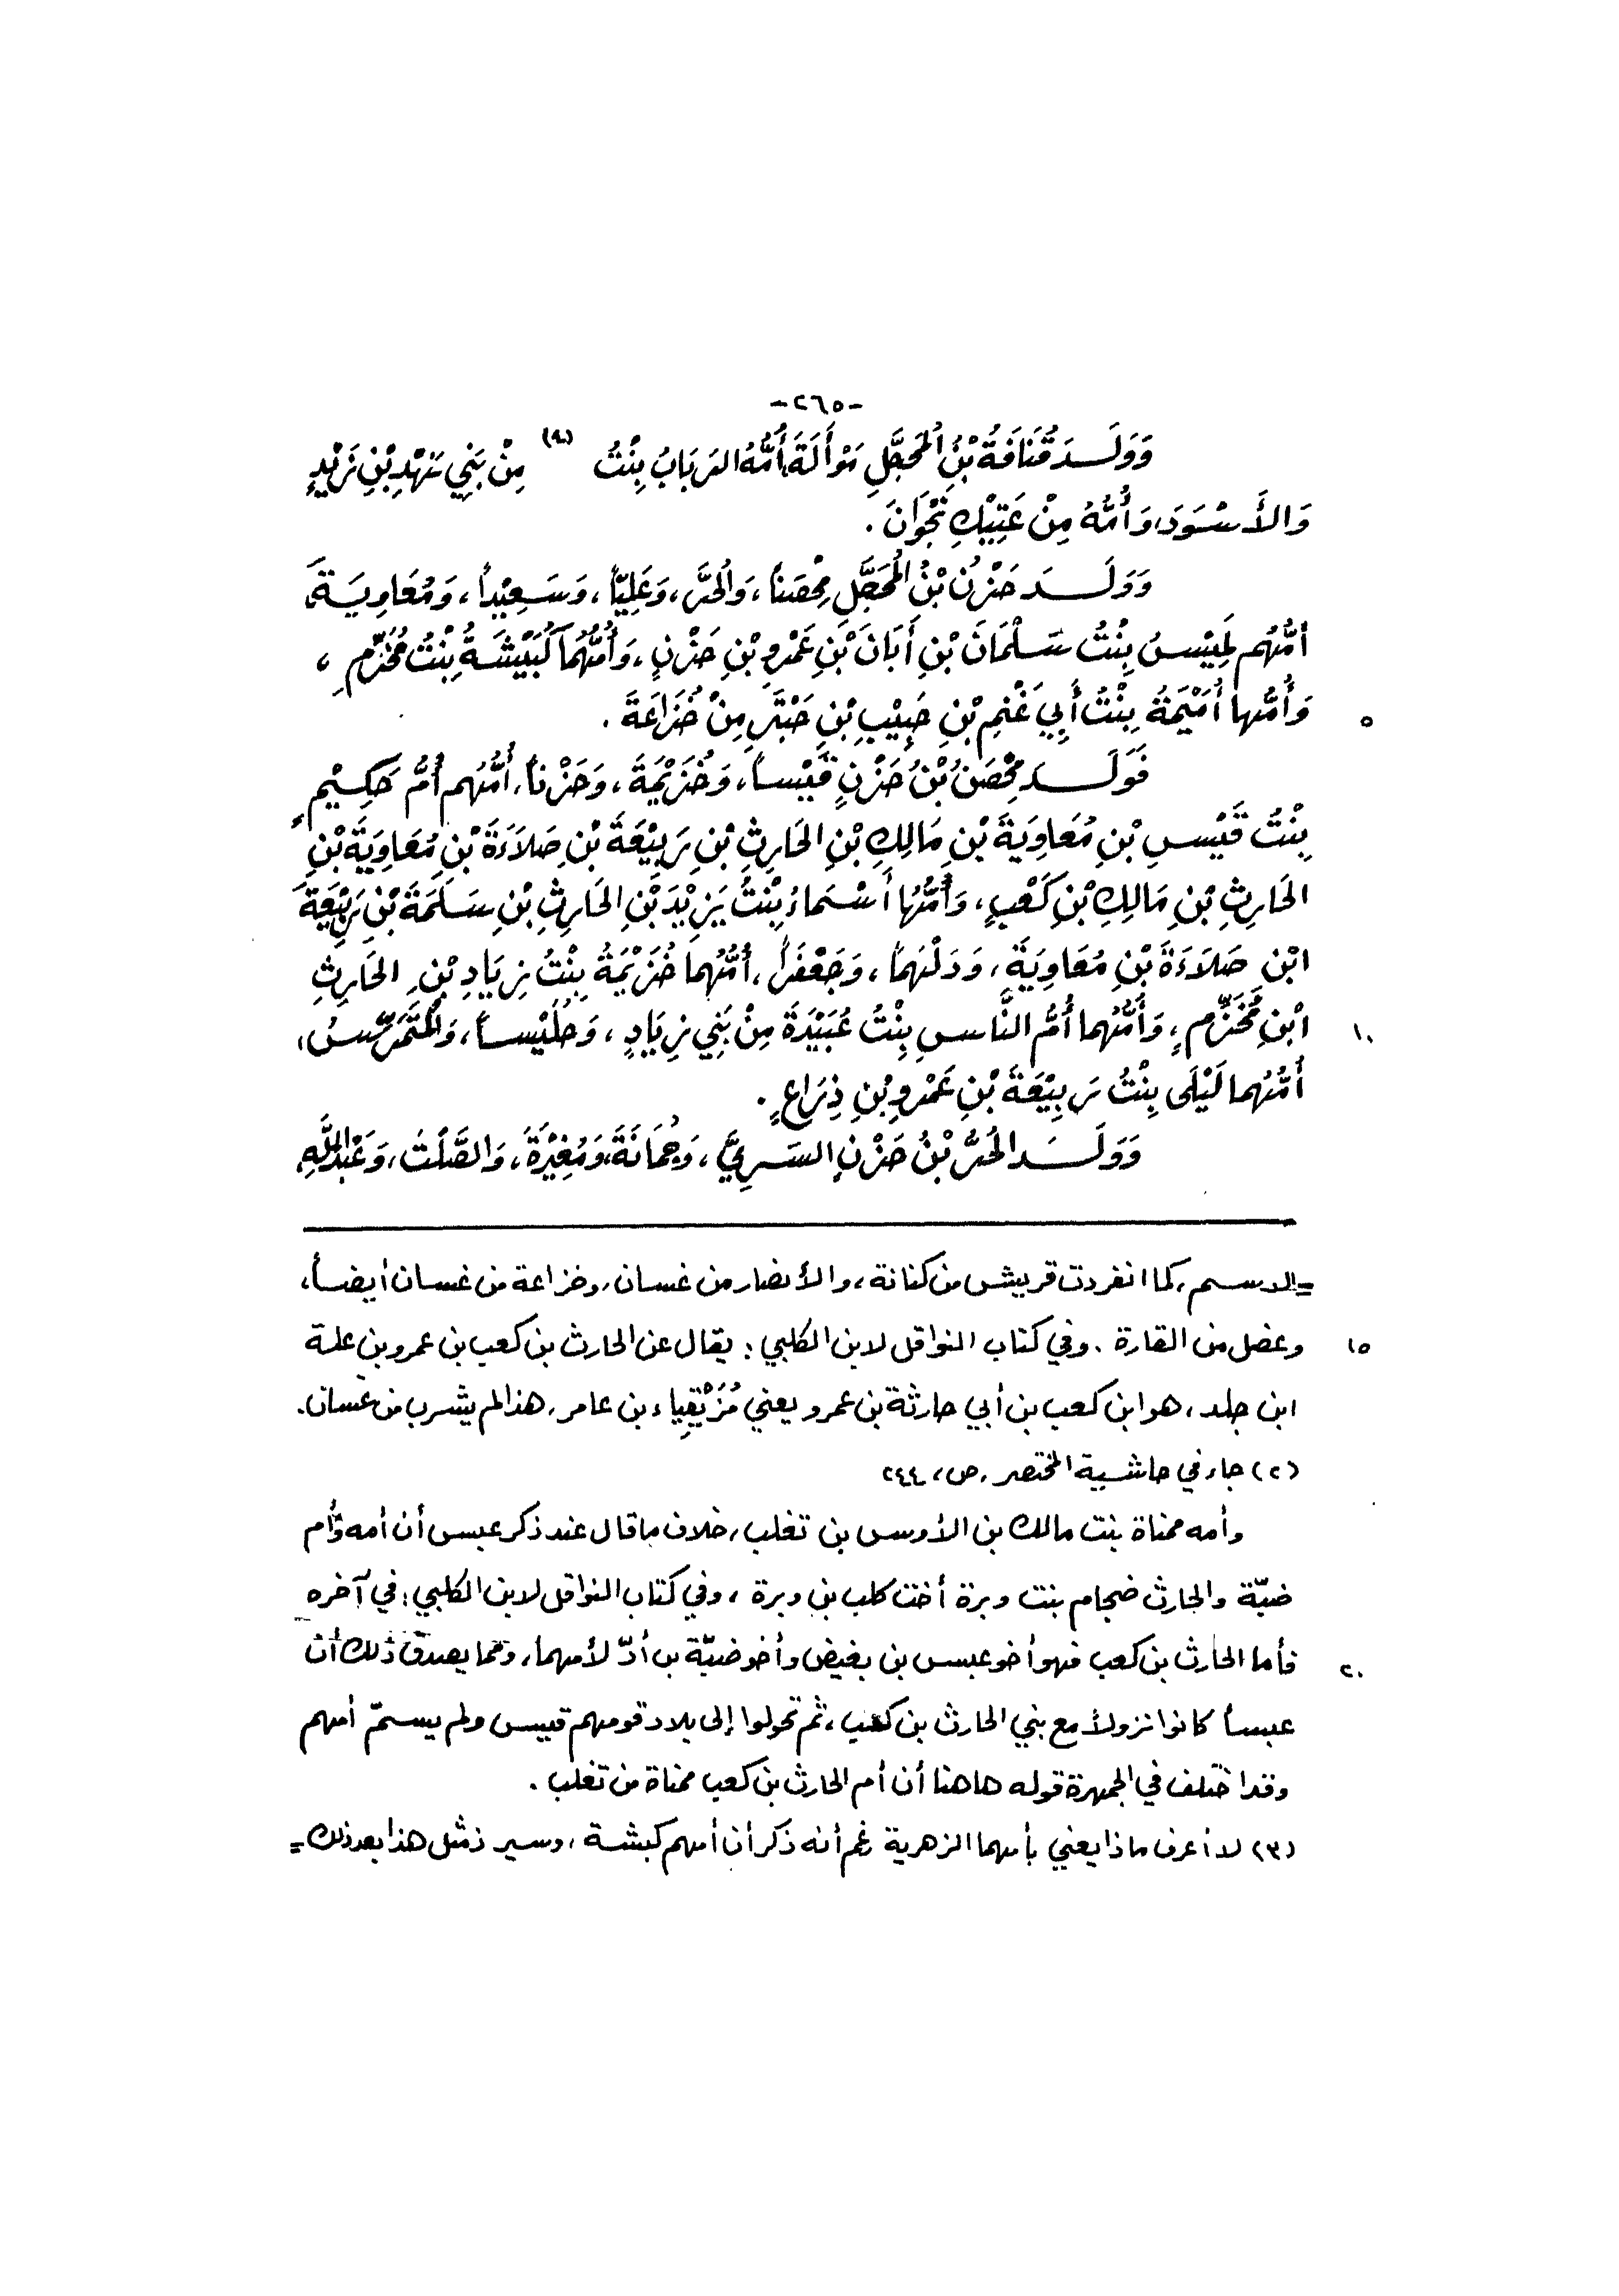 -٢٦٥-
وَوَلَـدَ قُنَافَةُ بْنُ الْمُحَجَّلِ مَوْأَلَةَ، أُمُّهُ الرَبَابُ بِنْتُ (٩) مِنْ بَنِي نَهْدِ بْنِ زَيْدٍ
وَالأَسْوَدَ، وَأُمُّهُ مِنْ عَتِيْكِ نَجْرَانَ .
وَوَلَـدَ حَزْنُ بْنُ الْمُحَجَّلِ مِحْصَناً، وَالْحُرَّ، وَعَلِيّاً، وَسَعِيْداً، وَمُعَاوِيَةَ،
أُمُّهُم لَمِيْسُ بِنْتُ سَلْمَانَ بْنِ أَبَانَ بْنِ عَمْرِو بْنِ حَزْنٍ، وَأُمُّهُمَا كُبَيْشَةُ بِنْتُ مُخَرِّمٍ،
وَأُمُّها أُمَيْمَةُ بِنْتُ أَبِي غَنْمِ بْنِ حَبِيْبِ بْنِ حَبْتَرٍ مِنْ خُزَاعَةَ . ٥
فَوَلَـدَ مِحْصَنُ بْنُ حَزْنٍ قَيْساً، وَخُزَيْمَةَ، وَحَزْناً، أُمُّهُم أُمُّ حَكِيْمٍ
بِنْتُ قَيْسِ بْنِ مُعَاوِيَةَ بْنِ مَالِكِ بْنِ الحَارِثِ بْنِ رَبِيْعَةَ بْنِ صَلاَءَةَ بْنِ مُعَاوِيَةَ بْنِ
الحَارِثِ بْنِ مَالِكِ بْنِ كَعْبٍ، وَأُمُّهَا أَسْمَاءُ بِنْتُ يَزِيْدَ بْنِ الحَارِثِ بْنِ سَلَمَةَ بْنِ رَبِيْعَةَ
ابْنِ صَلاَءَةَ بْنِ مُعَاوِيَةَ، وَدَلْهَماً، وَجَعْفَراً، أُمُّهُمَا خُزَيْمَةُ بِنْتُ زِيَادِ بْنِ الحَارِثِ
ابْنِ مُخَرِّمٍ، وَأُمُّهُما أُمُّ النَّاسِ بِنْتُ عُبَيْدَةَ مِنْ بَنِي زِيَادٍ، وَحُلَيْساً، وَالْمُتَمَرِّسُ، ١٠
أُمُّهُما لَيْلَى بِنْتُ رَبِيْعَةَ بْنِ عَمْرِو بْنِ ذِرَاعٍ .
وَوَلَـدَ الحُرُّ بْنُ حَزْنٍ السَرِيَّ، وَجُمَانَةَ، وَمُغِيْرَةَ، وَالصَّلْتَ، وَعَبْدَاللَّهِ،
=الدسم، كما انفردت قريش من كنانة، والأنصار من غسان، وخزاعة من غسان أيضاً،
وعضل من القارة . وفي كتاب النواقل لابن الكلبي : يقال عن الحارث بن كعب بن عمرو بن علة ١٥
ابن جلد، هو ابن كعب بن أبي حارثة بن عمرو يعني مُزَيْقِياء بن عامر، هذا لم يشرب من غسان.
(٢) جاء في حاشية المختصر، ص، ٢٤٤
وأمه مناة بنت مالك بن الأوس بن تغلب، خلاف ما قال عند ذكر عبس أن أمه وأم
ضبّة والحارث ضجام بنت وبرة أخت كلب بن وبرة، وفي كتاب النواقل لابن الكلبي : في آخره
فأما الحارث بن كعب فهو أخو عبس بن بغيض وأخو ضبّة بن أدّ لأمهما، ومما يصدق ذلك أن ٢٠
عبساً كانوا نزولاً مع بني الحارث بن كعب، ثم تحولوا إلى بلاد قومهم قيس ولم يسمّ أمهم
وقد اختلف في الجمهرة قوله هاهنا أن أم الحارث بن كعب مناة من تغلب .
(٣) لا أعرف ماذا يعني بأمهما الزهرية رغم أنه ذكر أن أمهم كبشة، وسير ذمثل هذا بعد ذلك=